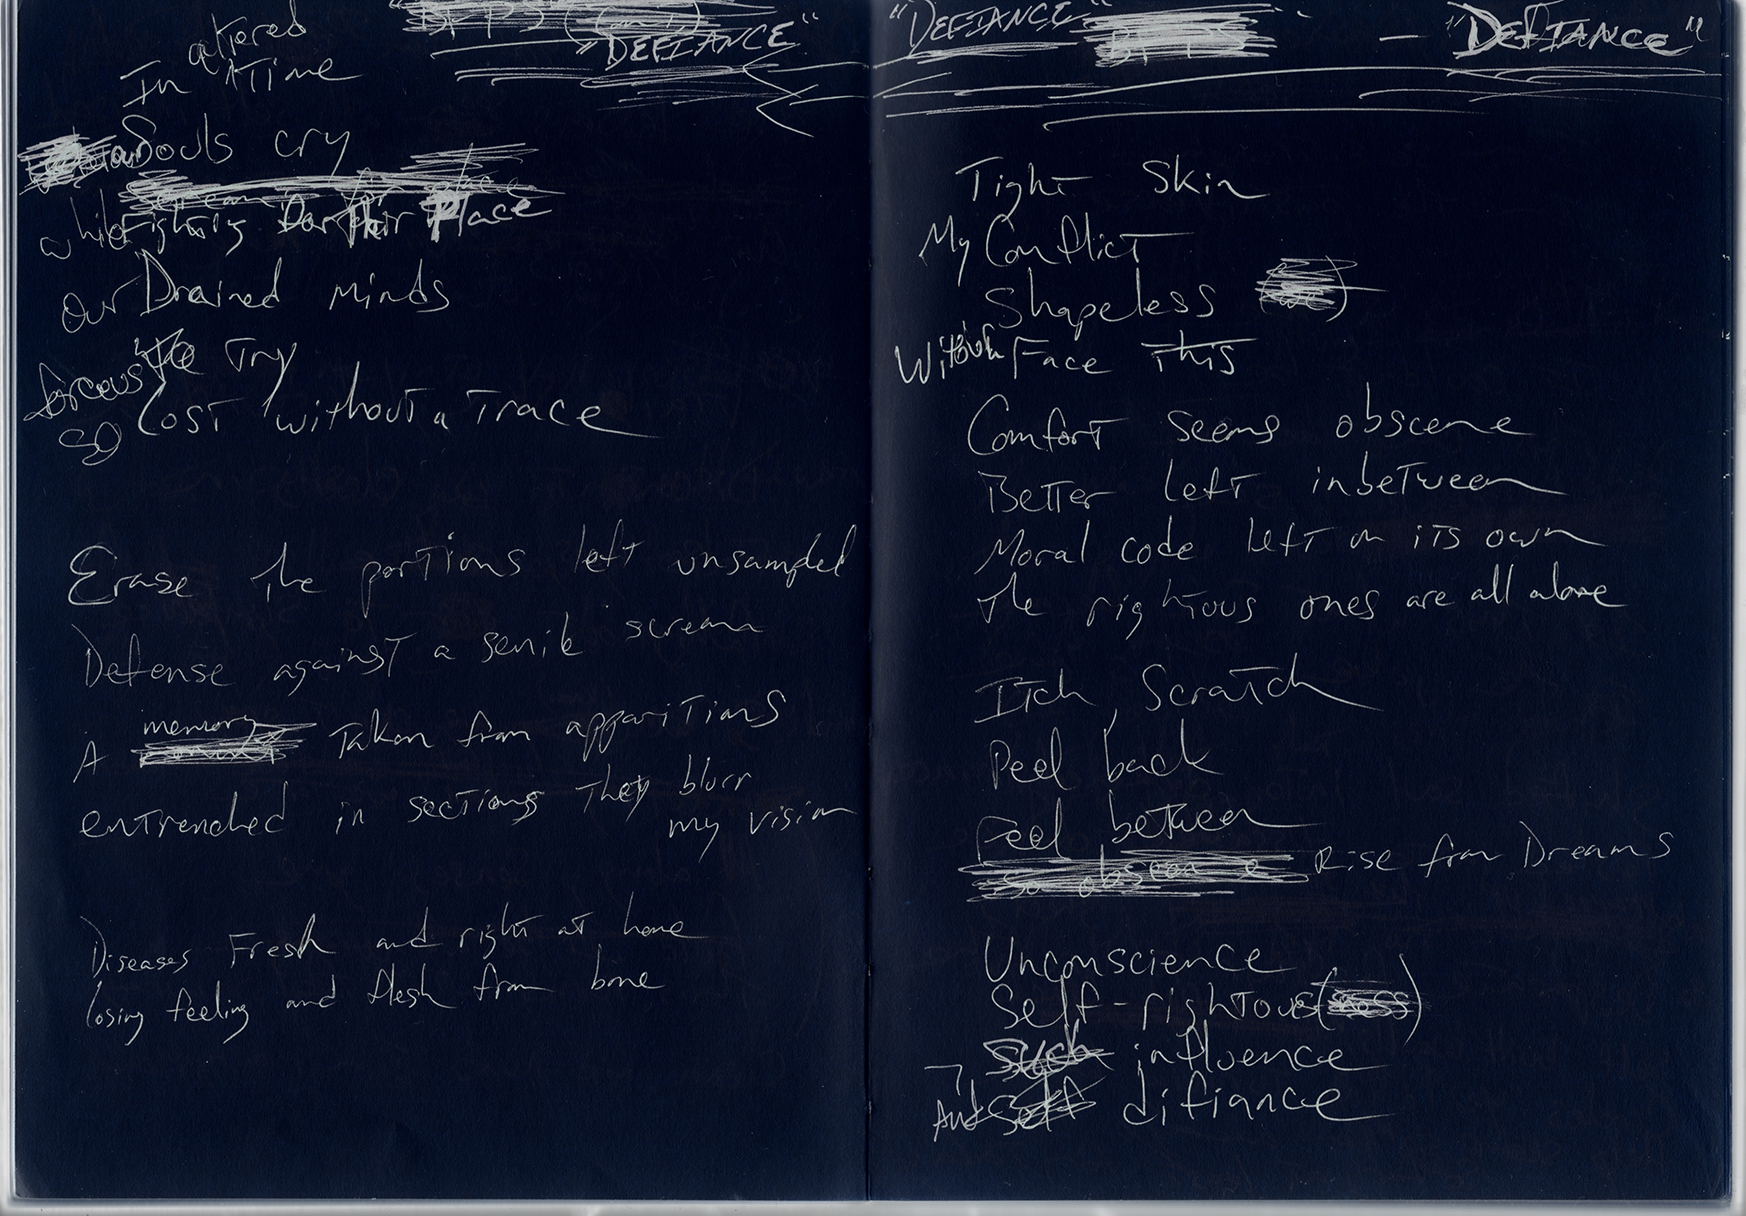 "DEFIANCE"
altered
In a Time
Souls cry
while Fighting For Their Place
our Drained minds
We Try
so Lost without a Trace
Erase the portions left unsampled
Defense against a senile scream
memory
A Taken from apparitions
entrenched in sections they blurr
my vision
Diseases Fresh and right at home
losing feeling and flesh from bone
"DEFIANCE" — "DEFIANCE"
Tight Skin
My Conflict
Shapeless
Without Face This
Comfort seems obscene
Better Left inbetween
Moral code left on its own
The rightous ones are all alone
Itch, Scratch
Peel back
Feel between
so obscene Rise from Dreams
Unconscience
Self-rightous(ness)
such influence
And self difiance